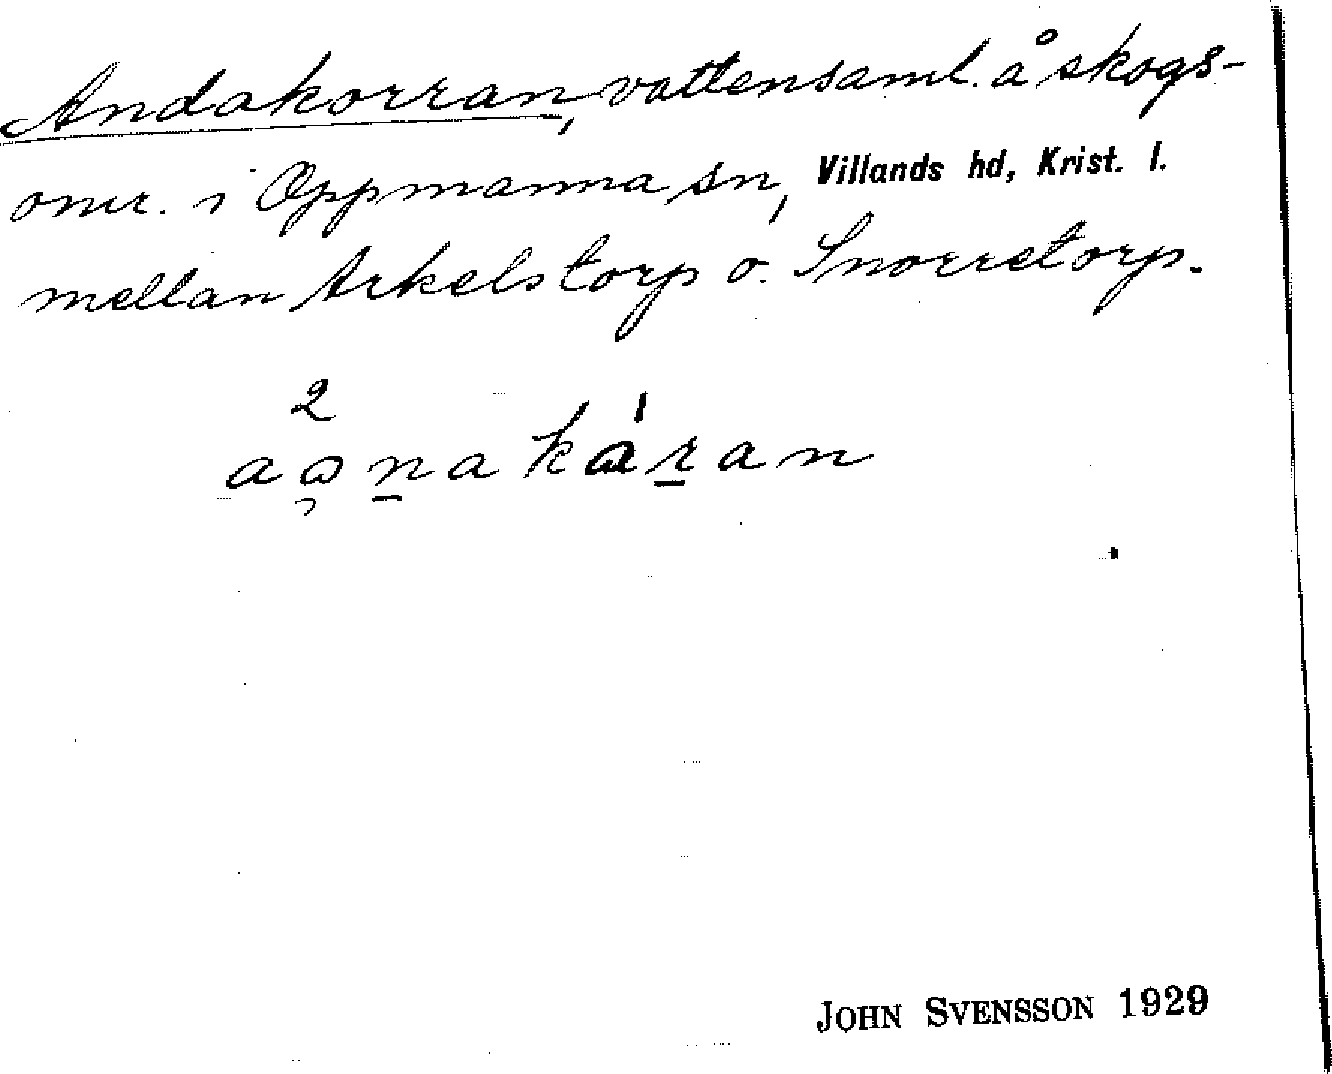 Andakorran, vattensaml. å skogs-
omr. i Oppmanna sn, Villands hd, Krist. l.
mellan Arkelstorp o. Snorretorp.
JOHN SVENSSON 1929